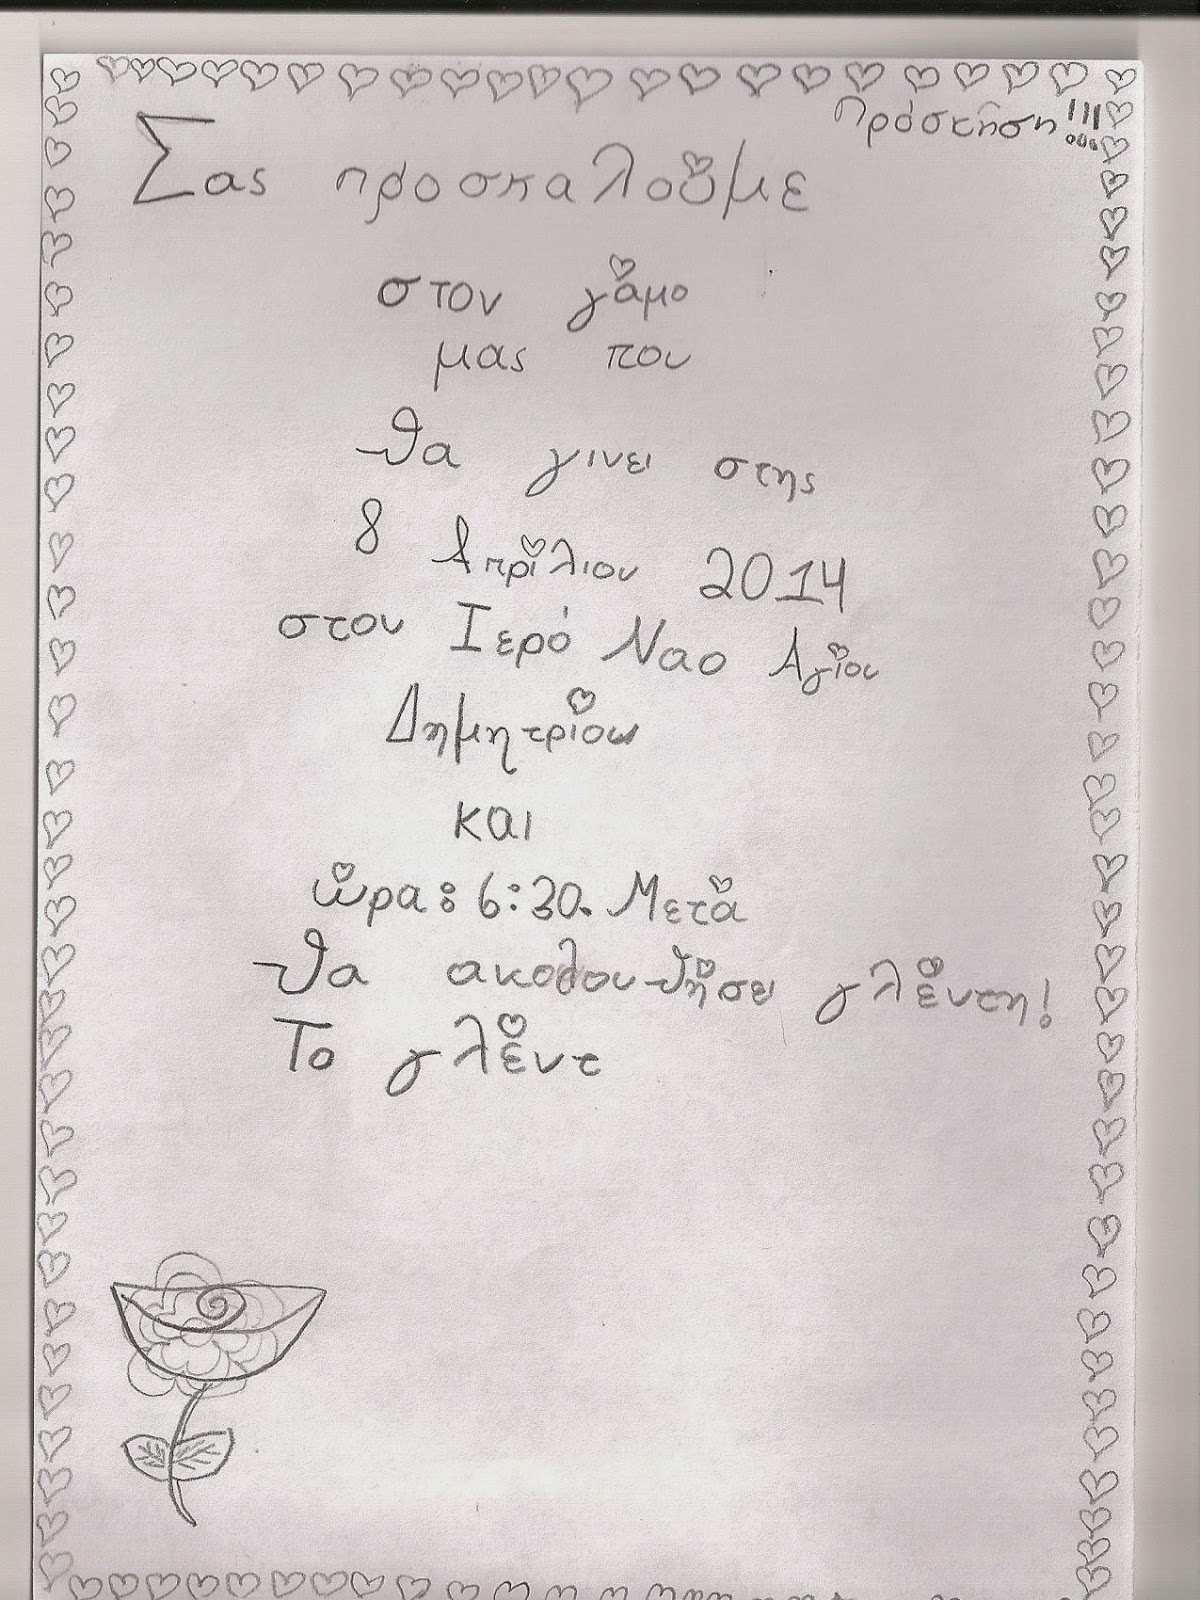 Πρόσκηση!!!
Σας προσκαλούμε
στον γάμο
μας που
θα γινει στης
8 Απρίλιου 2014
στον Ιερό Ναο Αγίου
Δημητρίου
και
ώρα: 6:30. Μετά
θα ακολουθήσει γλέντη!
Το γλέντ